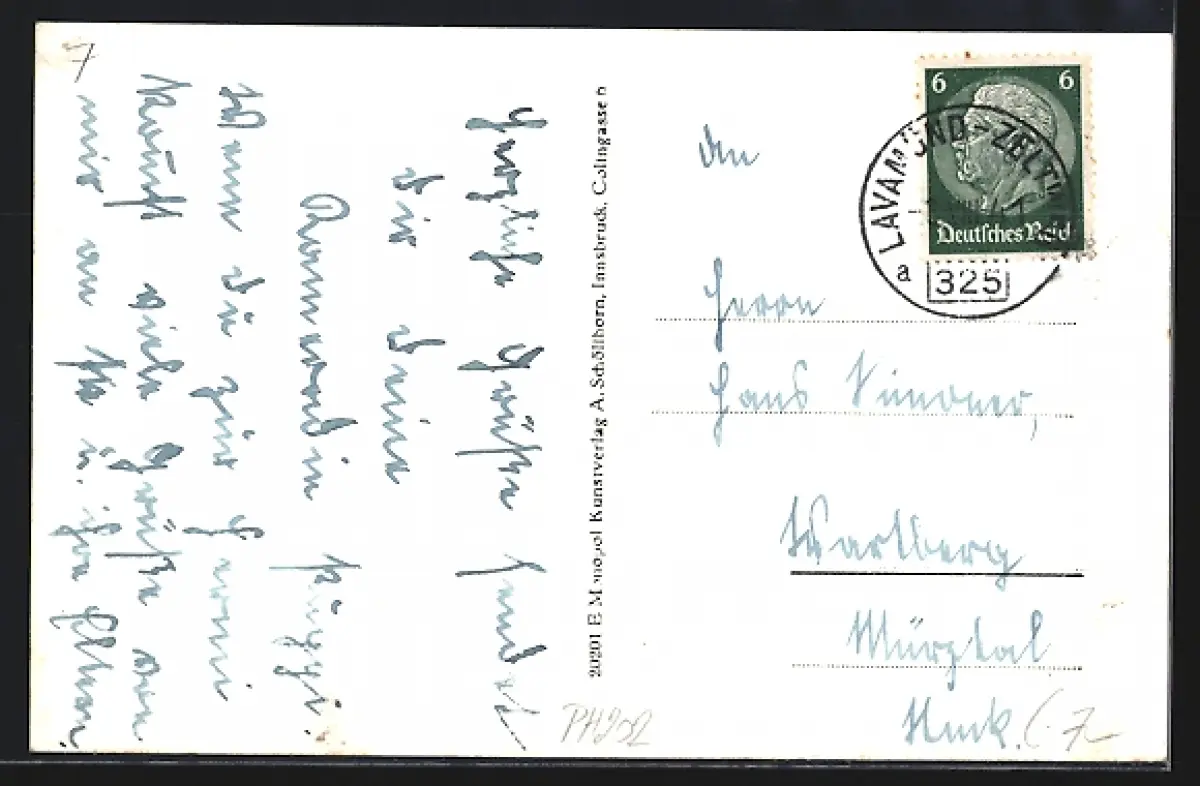 Herzliche Grüße sendet
dir deine
Kameradin
Wenn du zur Hermi
kommst viele Grüße von
mir an sie u. ihre Eltern.
20201 E Monopol Kunstverlag A. Schöllhorn, Innsbruck, Colingasse 6
PH202
6 6
Deutsches Reich
LAVAMÜND-ZELTWEG
a 325
An
Herrn
Hans
Wartberg
Mürztal
Stmk.
7
7